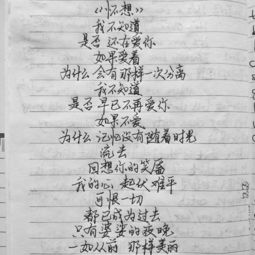 《怀想》
我不知道
是否 还在爱你
如果爱着
为什么 会有那样一次分离
我不知道
是否 早已不再爱你
如果不爱
为什么 记忆没有随着时光
流去
回想你的笑靥
我的心 起伏难平
可恨一切
都已成为过去
只有婆娑的夜晚
一如从前 那样美丽